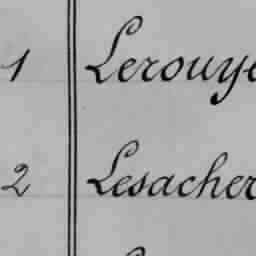 1 Lerouye
2 Lesacher